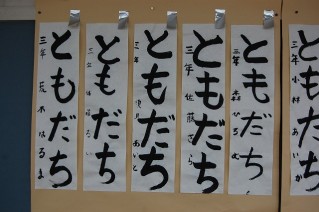 ともだち
三年 小林 あいか
ともだち
三年 森 ひろむ
ともだち
三年 佐藤 さくら
ともだち
三年
ともだち
三年
ともだち
三年 荒木 はるま